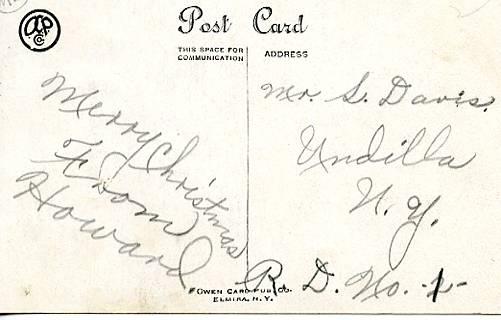 Post Card
THIS SPACE FOR
COMMUNICATION
ADDRESS
Merry Christmas
From
Howard
Mr. S. Davis.
Undilla
N. Y.
R. D. No. -1-
OWEN CARD PUB. CO.
ELMIRA, N. Y.